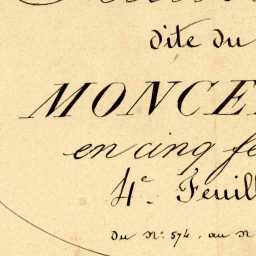 dite du
MONCE
en cinq fe
4e Feuill
Du No. 574. au N